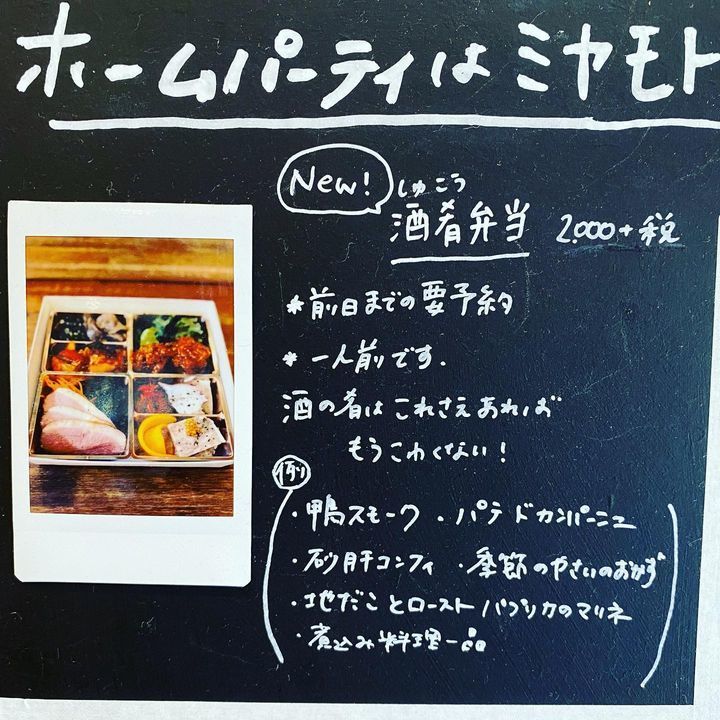 ホームパーティはミヤモト
New!
しゅこう
酒肴弁当 2,000+税
*前日までの要予約
*一人前です.
酒の肴はこれさえあれば
もうこわくない!
例
・鴨スモーク ・パテドカンパーニュ
・砂肝コンフィ ・季節のやさいのおかず
・地だことローストパプリカのマリネ
・煮込み料理一品